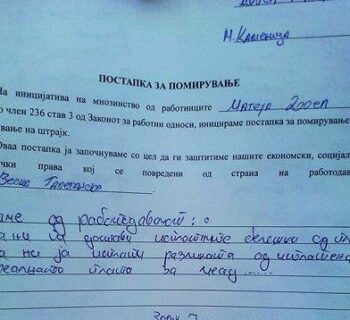 М. Каменица
ПОСТАПКА ЗА ПОМИРУВАЊЕ
На иницијатива на мнозинство од работниците Матеја 200еп
о член 236 став 3 од Законот за работни односи, иницираме постапка за помирување
вање на штрајк.
Оваа постапка ја започнуваме со цел да ги заштитиме нашите економски, социјал
чки права кој се повредени од страна на работодав
Весна
аме од работодавачот:
да ни ги достави исплатните од
а ни ја исплати разликата од
реалната плата за месец ....